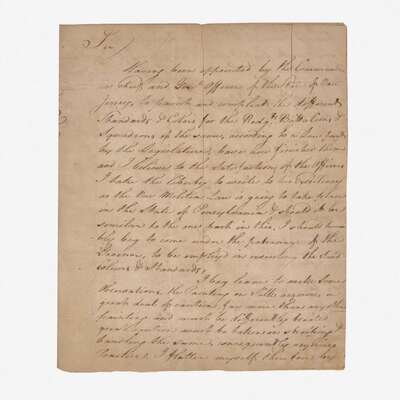 Sir,
Having been appointed by the Commander
in Chief, and Genl. Officers of the
Jersey, to
Standards & Colors for the Regts. Battalions &
Squadrons of the same, according to a Law passed
by the Legislature, have now finished them
and I believe to the satisfaction of the Officers
I take this liberty to write to his Excellency
as the New Militia Law is going to take place
in the State of Pennsylvania & should it be
similar to the one past in this, I should hum
bly beg to come under the patronage of the
to be employed in executing the said
colours & Standards,
I beg leave to make some
observations the Painting on Silk requires a
great deal of any other
painting and must be differently treated
great Caution must be taken in &
handling the same, consequently
I flatter myself, that